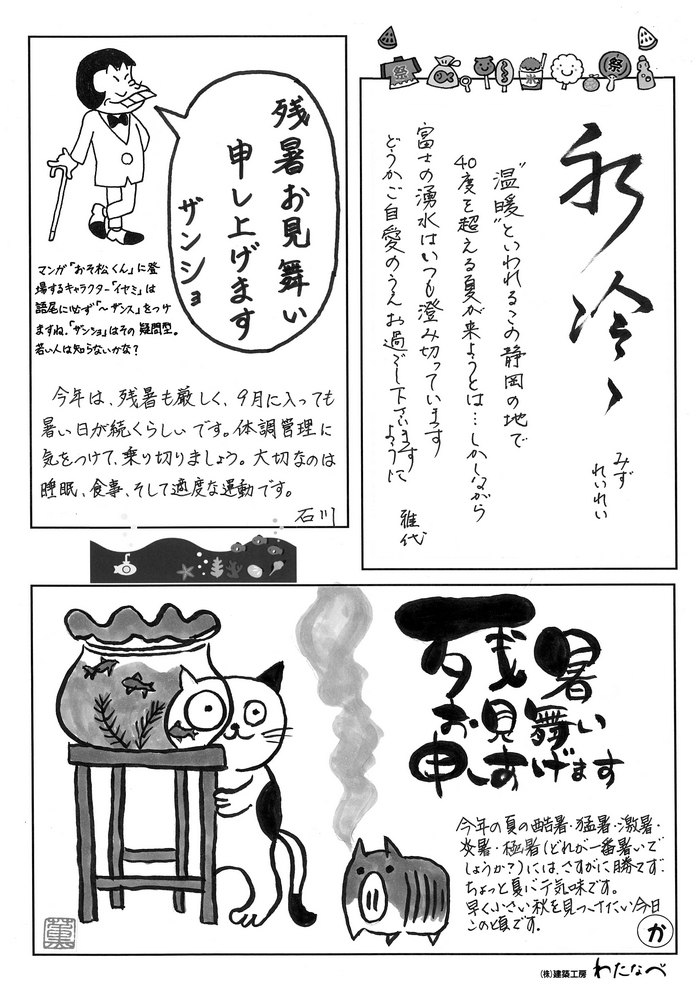 残暑お見舞い
申し上げます
ザンショ
マンガ「おそ松くん」に登
場するキャラクター「イヤミ」は
語尾に必ず「〜ザンス」をつけ
ますね。「ザンショ」はその疑問型。
若い人は知らないかな？
今年は、残暑も厳しく、9月に入っても
暑い日が続くらしいです。体調管理に
気をつけて、乗り切りましょう。大切なのは
睡眠、食事、そして適度な運動です。
石川
祭
氷
祭
冷々
みず
れいれい
"温暖"といわれるこの静岡の地で
40度を超える夏が来ようとは…しかしながら
富士の湧水はいつも澄み切っています
どうかご自愛のうえお過ごし下さいます
ように
雅代
残暑
お見舞い
申しあげます
今年の夏の酷暑・猛暑・激暑・
炎暑・極暑(どれが一番暑いで
しょうか？)には、さすがに勝てず、
ちょっと夏バテ気味です。
早く小さい秋を見つけたい今日
このと頃です。
か
薫
(株)建築工房 わたなべ